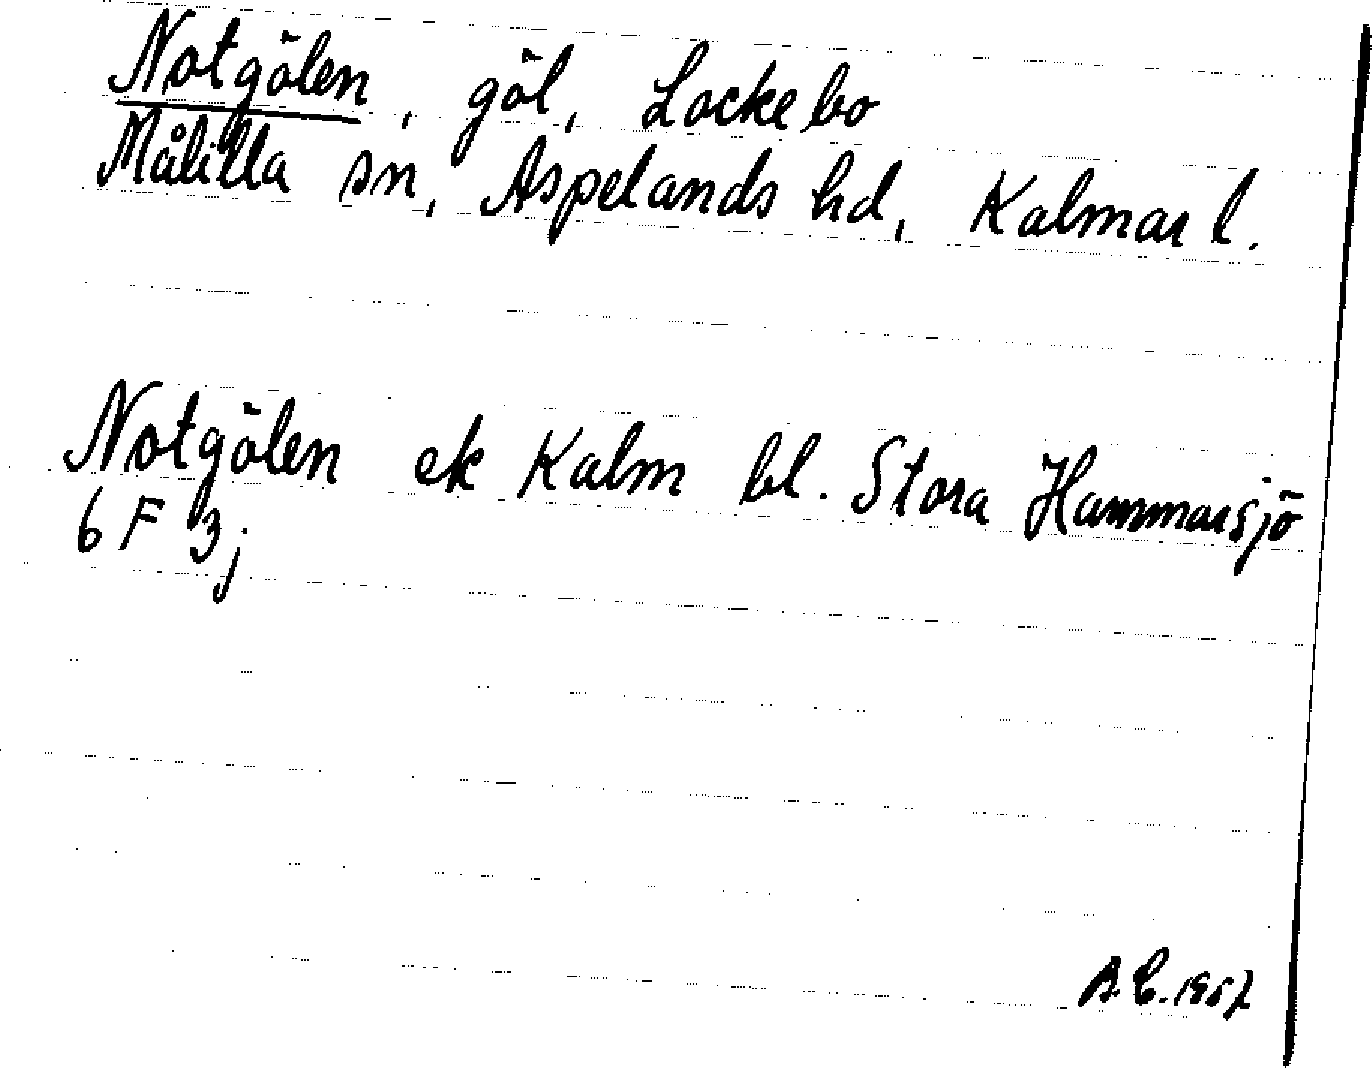 Notgölen, göl, Lockebo
Målilla sn, Aspelands hd, Kalmar l.
Notgölen ek Kalm bl. Stora Hammarsjö
6 F 3j